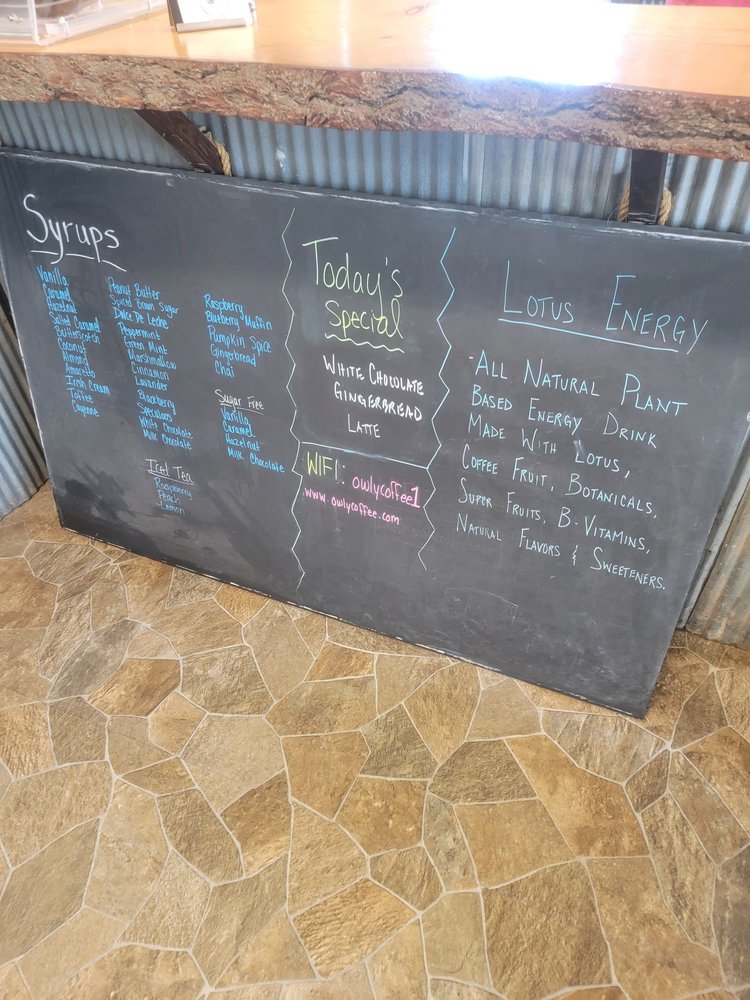 Syrups
Vanilla
Caramel
Hazelnut
Salted Caramel
Butterscotch
Coconut
Almond
Amaretto
Irish Cream
Toffee
Cayenne
Peanut Butter
Spiced Brown Sugar
Dulce De Leche
Peppermint
Green Mint
Marshmallow
Cinnamon
Lavander
Blackberry
Speculoos
White Chocolate
Milk Chocolate
Raspberry
Blueberry Muffin
Pumpkin Spice
Gingerbread
Chai
Sugar Free
Vanilla
Caramel
Hazelnut
Milk Chocolate
Iced Tea
Raspberry
Peach
Lemon
Today's
Special
White Chocolate
Gingerbread
Latte
WIFI: owlycoffee1
www.owlycoffee.com
Lotus Energy
-All Natural Plant
Based Energy Drink
Made With Lotus,
Coffee Fruit, Botanicals,
Super Fruits, B-Vitamins,
Natural Flavors & Sweeteners.